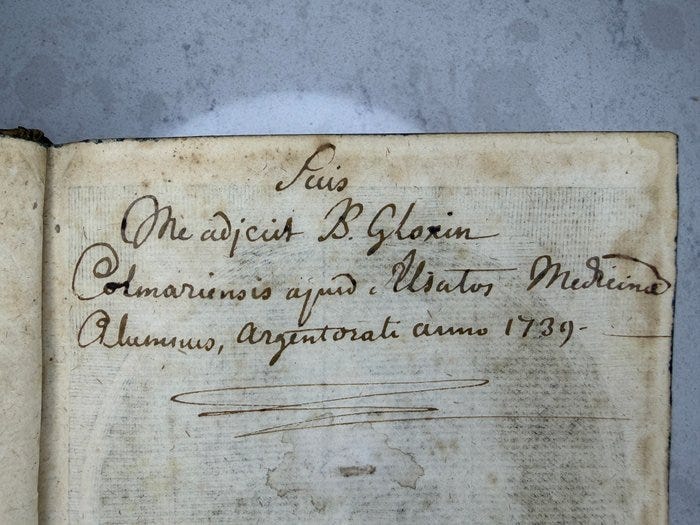 Suis
Me adjecit B. Gloxin
Colmariensis apud Usatos Medicinæ
Alumnus, Argentorati anno 1739.